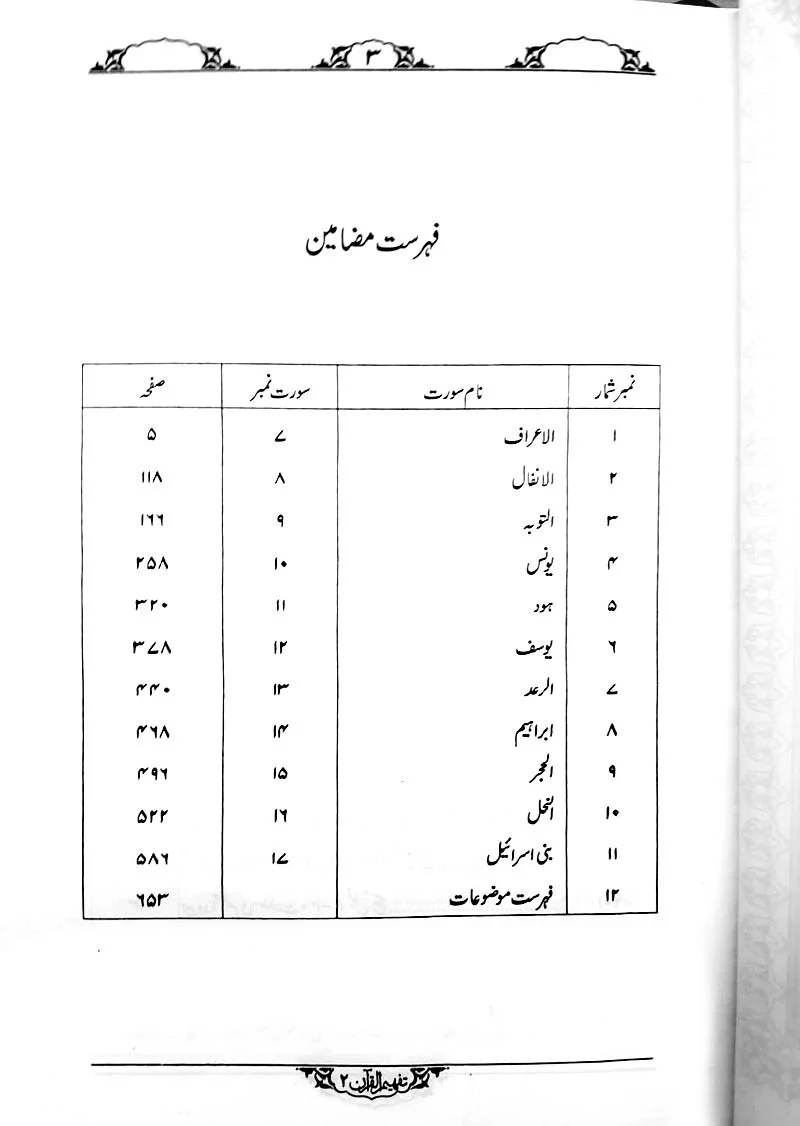 ۳
فہرست مضامین
نمبر شمار نام سورت سورت نمبر صفحہ
۱ الاعراف ۷ ۵
۲ الانفال ۸ ۱۱۸
۳ التوبہ ۹ ۱۶۶
۴ یونس ۱۰ ۲۵۸
۵ ہود ۱۱ ۳۲۰
۶ یوسف ۱۲ ۳۷۸
۷ الرعد ۱۳ ۴۴۰
۸ ابراہیم ۱۴ ۴۶۸
۹ الحجر ۱۵ ۴۹۶
۱۰ النحل ۱۶ ۵۲۲
۱۱ بنی اسرائیل ۱۷ ۵۸۶
۱۲ فہرست موضوعات ۶۵۳
تفہیم القرآن ۲